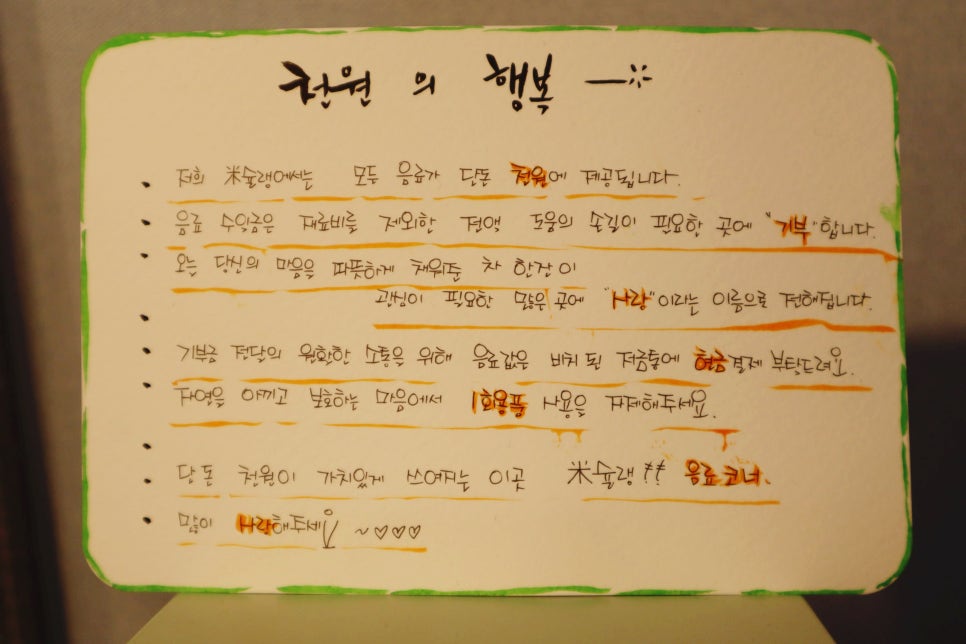 천원의 행복
저희 米슐랭에서는 모든 음료가 단돈 천원에 제공됩니다.
음료 수익금은 재료비를 제외한 전액 도움의 손길이 필요한 곳에 "기부"합니다.
오늘 당신의 마음을 따뜻하게 채워준 차 한잔이
관심이 필요한 많은 곳에 "사랑"이라는 이름으로 전해집니다.
기부금 전달의 원활한 소통을 위해 음료값은 비치 된 저금통에 현금결제 부탁드려요.
자연을 아끼고 보호하는 마음에서 1회용품 사용을 자제해주세요.
단돈 천원이 가치있게 쓰여지는 이곳 米슐랭!! 음료코너.
많이 사랑해주세요~♡♡♡♡